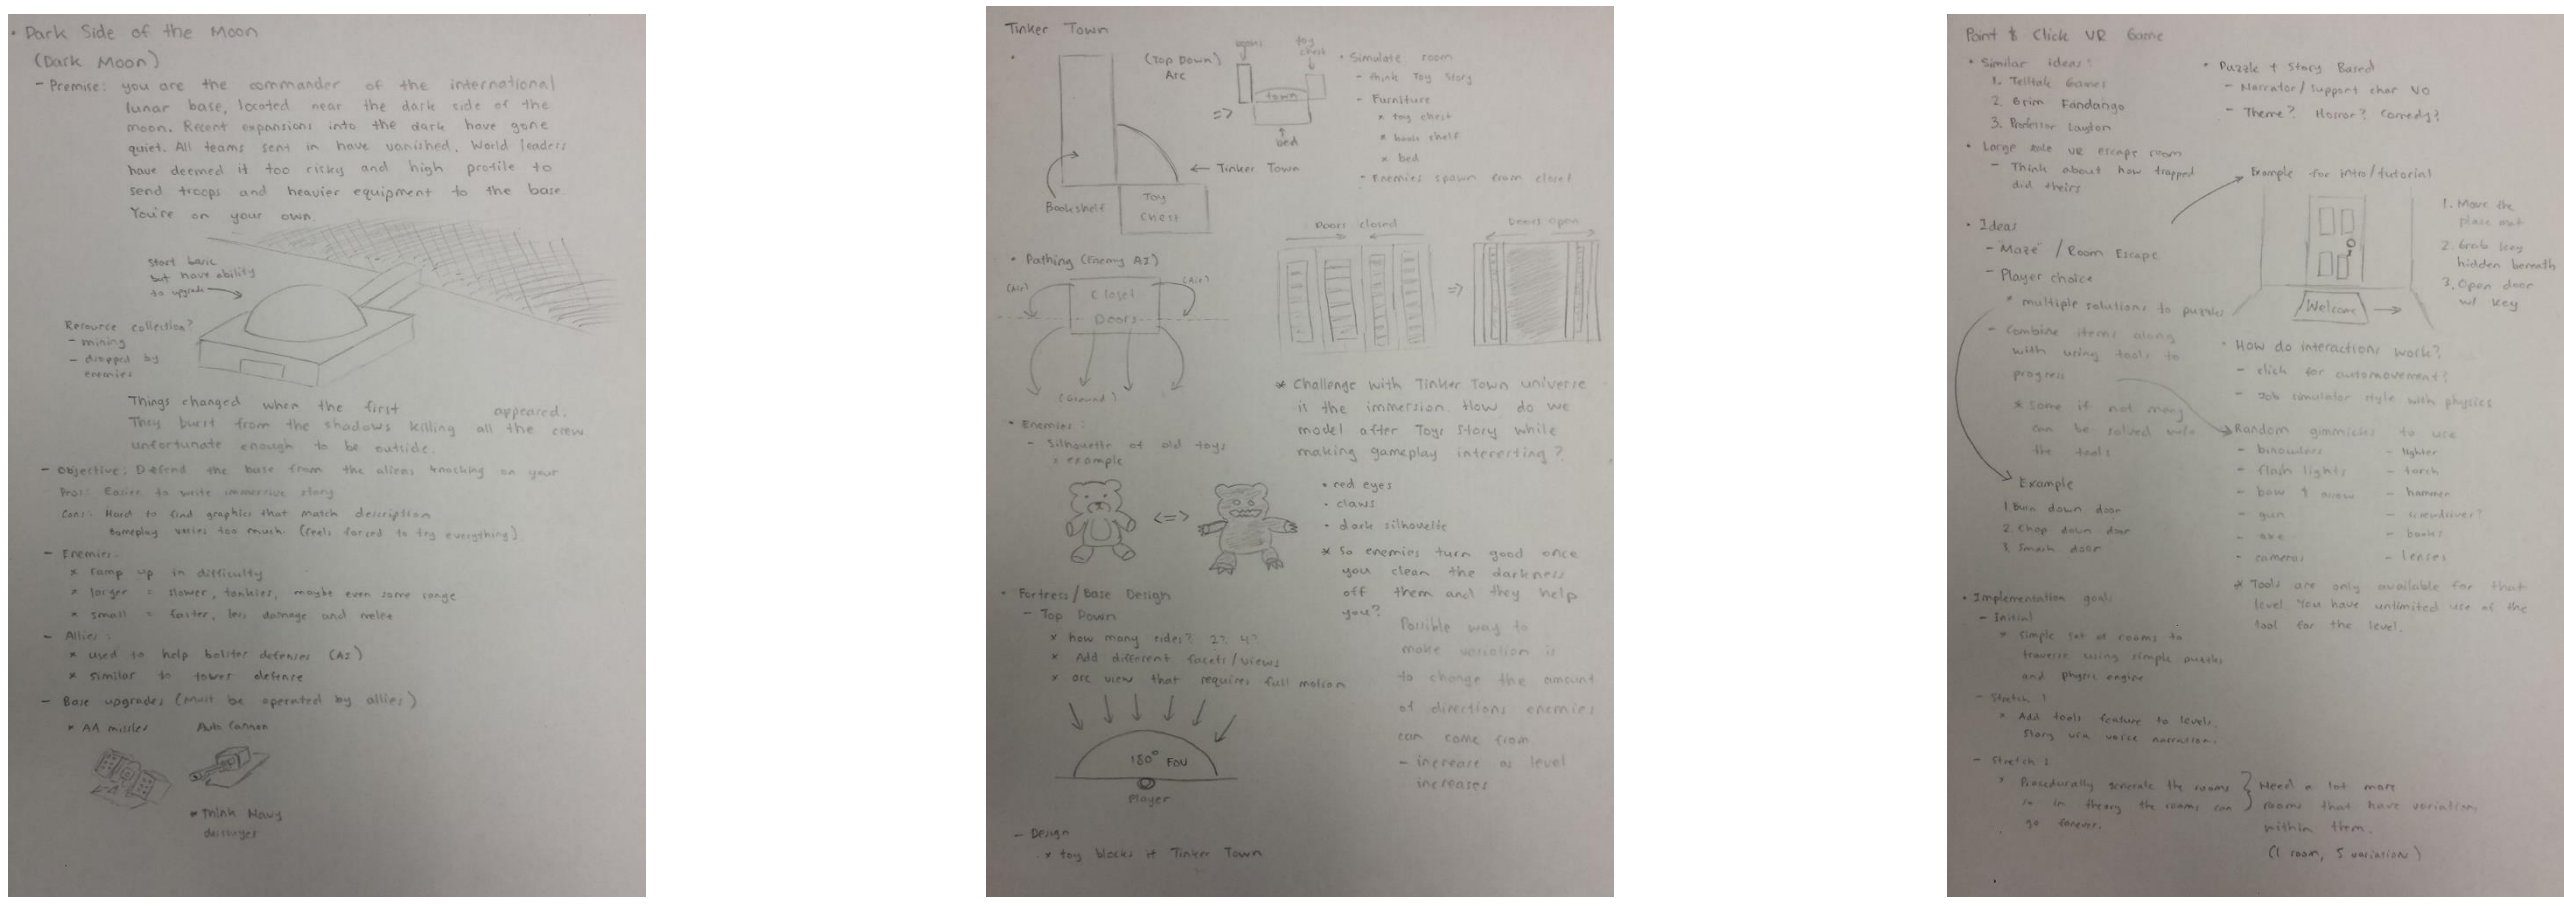 • Dark Side of the Moon
(Dark Moon)
- Premise: you are the commander of the international
lunar base, located near the dark side of the
moon. Recent expansions into the dark have gone
quiet. All teams sent in have vanished. World leaders
have deemed it too risky and high profile to
send troops and heavier equipment to the base.
You're on your own.
start basic
but have ability
to upgrade
Resource collection?
- mining
- dropped by
enemies
Things changed when the first appeared.
They burst from the shadows killing all the crew
unfortunate enough to be outside.
- Objective: Defend the base from the aliens knocking on your
Pros: Easier to write immersive story
Cons: Hard to find graphics that match description
Gameplay varies too much (feels forced to try everything)
- Enemies:
* ramp up in difficulty
* larger = slower, tankier, maybe even some range
* small = faster, less damage and melee
- Allies:
* used to help bolster defenses (AI)
* similar to tower defense
- Base upgrades (must be operated by allies)
* AA missiles
Auto Cannon
* Think Navy
destroyer
Tinker Town
(Top Down)
Arc
=>
toy
chest
town
bed
Bookshelf
Toy
Chest
← Tinker Town
• Simulate room
- think Toy Story
- Furniture
* toy chest
* book shelf
* bed
- Enemies spawn from closet
• Pathing (Enemy AI)
(Air)
Closet
Doors
(Air)
(Ground)
Doors closed
=>
Doors open
* Challenge with Tinker Town universe
is the immersion. How do we
model after Toys Story while
making gameplay interesting?
• Enemies:
- Silhouette of old toys
* example
<=>
• red eyes
- claws
• dark silhouette
* So enemies turn good once
you clean the darkness
off them and they help
you?
• Fortress/Base Design
- Top Down
* how many sides? 2? 4?
* Add different facets/views
* arc view that requires full motion
180° FOV
Player
Possible way to
make variation is
to change the amount
of directions enemies
can come from
- increase as level
increases
- Design
* toy blocks if Tinker Town
Point & Click VR Game
• Similar ideas:
1. Telltale Games
2. Grim Fandango
3. Professor Layton
• Large scale VR escape room
- Think about how trapped
did theirs
• Puzzle + Story Based
- Narrator/support char VO
- Theme? Horror? Comedy?
Example for intro/tutorial
Welcome
1. Move the
place mat
2. Grab key
hidden beneath
3. Open door
w/ key
• Ideas
- "Maze" / Room Escape
- Player choice
* multiple solutions to puzzles
- Combine items along
with using tools to
progress
* Some if not many
can be solved
the tools
Example
1. Burn down door
2. Chop down door
3. Smash door
• How do interactions work?
- click for automovement?
- Job simulator style with physics
Random gimmicks to use
- binoculars
- flash lights
- bow & arrow
- gun
- axe
- cameras
- lighter
- torch
- hammer
- screwdriver?
- books
- lenses
* Tools are only available for that
level. You have unlimited use of the
tool for the level.
• Implementation goals
- Initial
* simple set of rooms to
traverse using simple puzzles
and physic engine
- Stretch 1
* Add tools feature to levels.
Story via voice narration.
- Stretch 2
* Procedurally generate the rooms
so in theory the rooms can
go forever.
Need a lot more
rooms that have variation
within them.
(1 room, 5 variation)